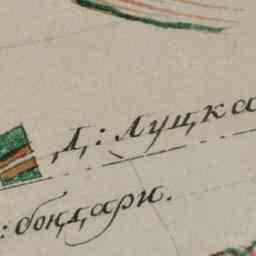 Д: Луцка
: бондари.